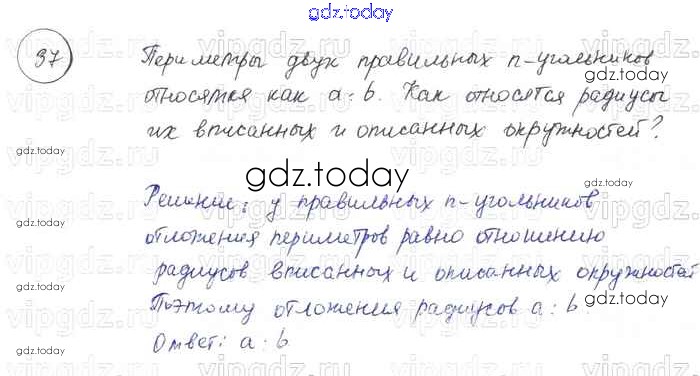 gdz.today
37
Периметры двух правильных n-угольников
относятся как a:b. Как относятся радиусы
их вписанных и описанных окружностей?
gdz.today
gdz.today
gdz.today
gdz.today
gdz.today
Решение: у правильных n-угольников
отложения периметров равно отношению
радиусов вписанных и описанных окружностей
gdz.today
gdz.today
Поэтому отложения радиусов a:b.
Ответ: a:b
gdz.today
gdz.today
vipgdz.ru